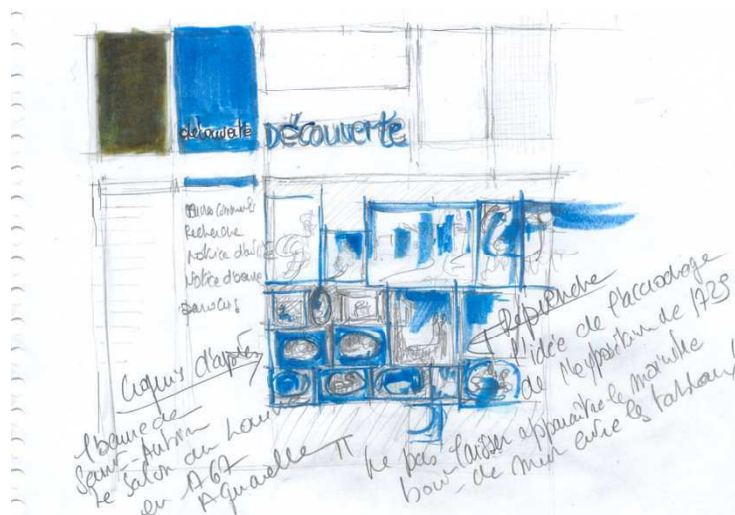 découverte DÉCOUVERTE
Recherche
Notice d'
Notice d'oeuvre
Parcours
Croquis d'après
l'oeuvre de
Saint-Aubin
Le Salon du Louvre
en 1767
Aquarelle
Reprendre
l'idée de l'accrochage
de l'exposition de 1725
Ne pas laisser apparaître le moindre
bout de mur entre les tableaux